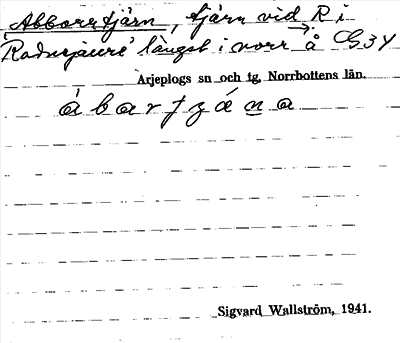 Abborrtjärn, tjärn vid R i
'Radnejaure' längst i norr → å G34
Arjeplogs sn och tg, Norrbottens län.
Sigvard Wallström, 1941.